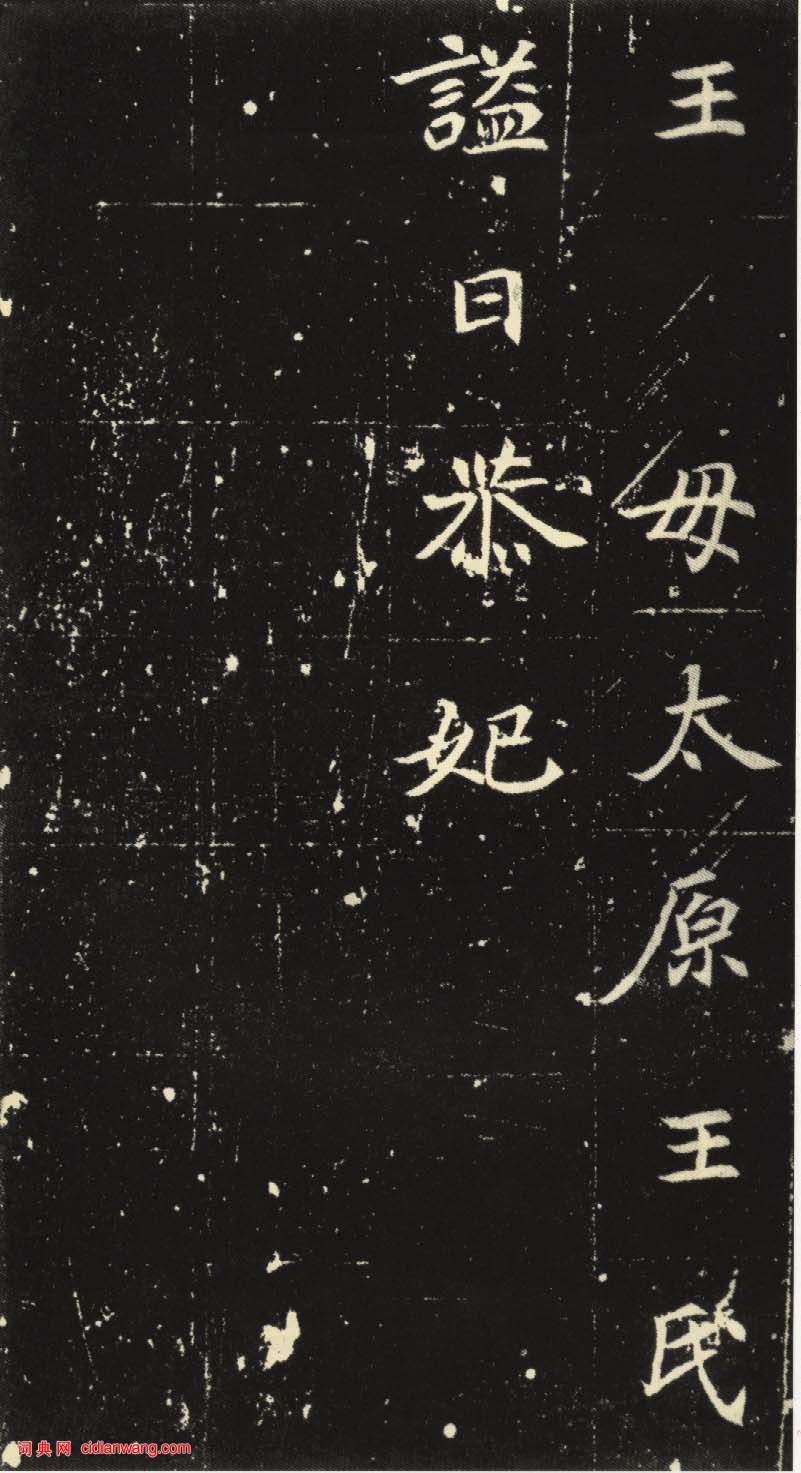 王母太原王氏
謚曰恭妃
词典网 cidianwang.com